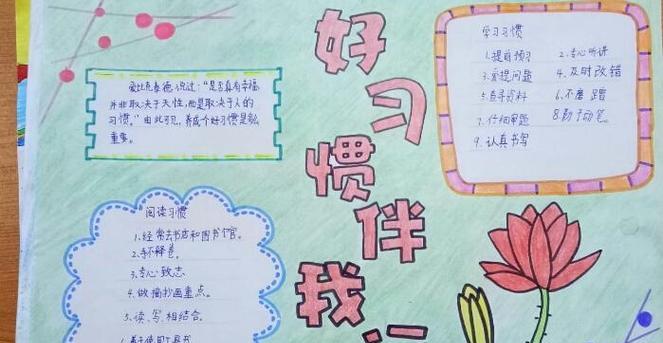 好习惯伴我
爱比克泰德说过:“是否真有幸福
并非取决于天性,而是取决于人的
习惯。”由此可见,养成个好习惯是多么
重要。
学习习惯
1.提前预习 2.专心听讲
3.爱提问题 4.及时改错
5.查寻资料 6.不磨蹭
7.仔细审题 8.勤于动笔
9.认真书写
阅读习惯
1.经常去书店和图书馆。
2.手不释卷。
3.专心致志
4.做摘抄画重点。
5.读、写、相结合。